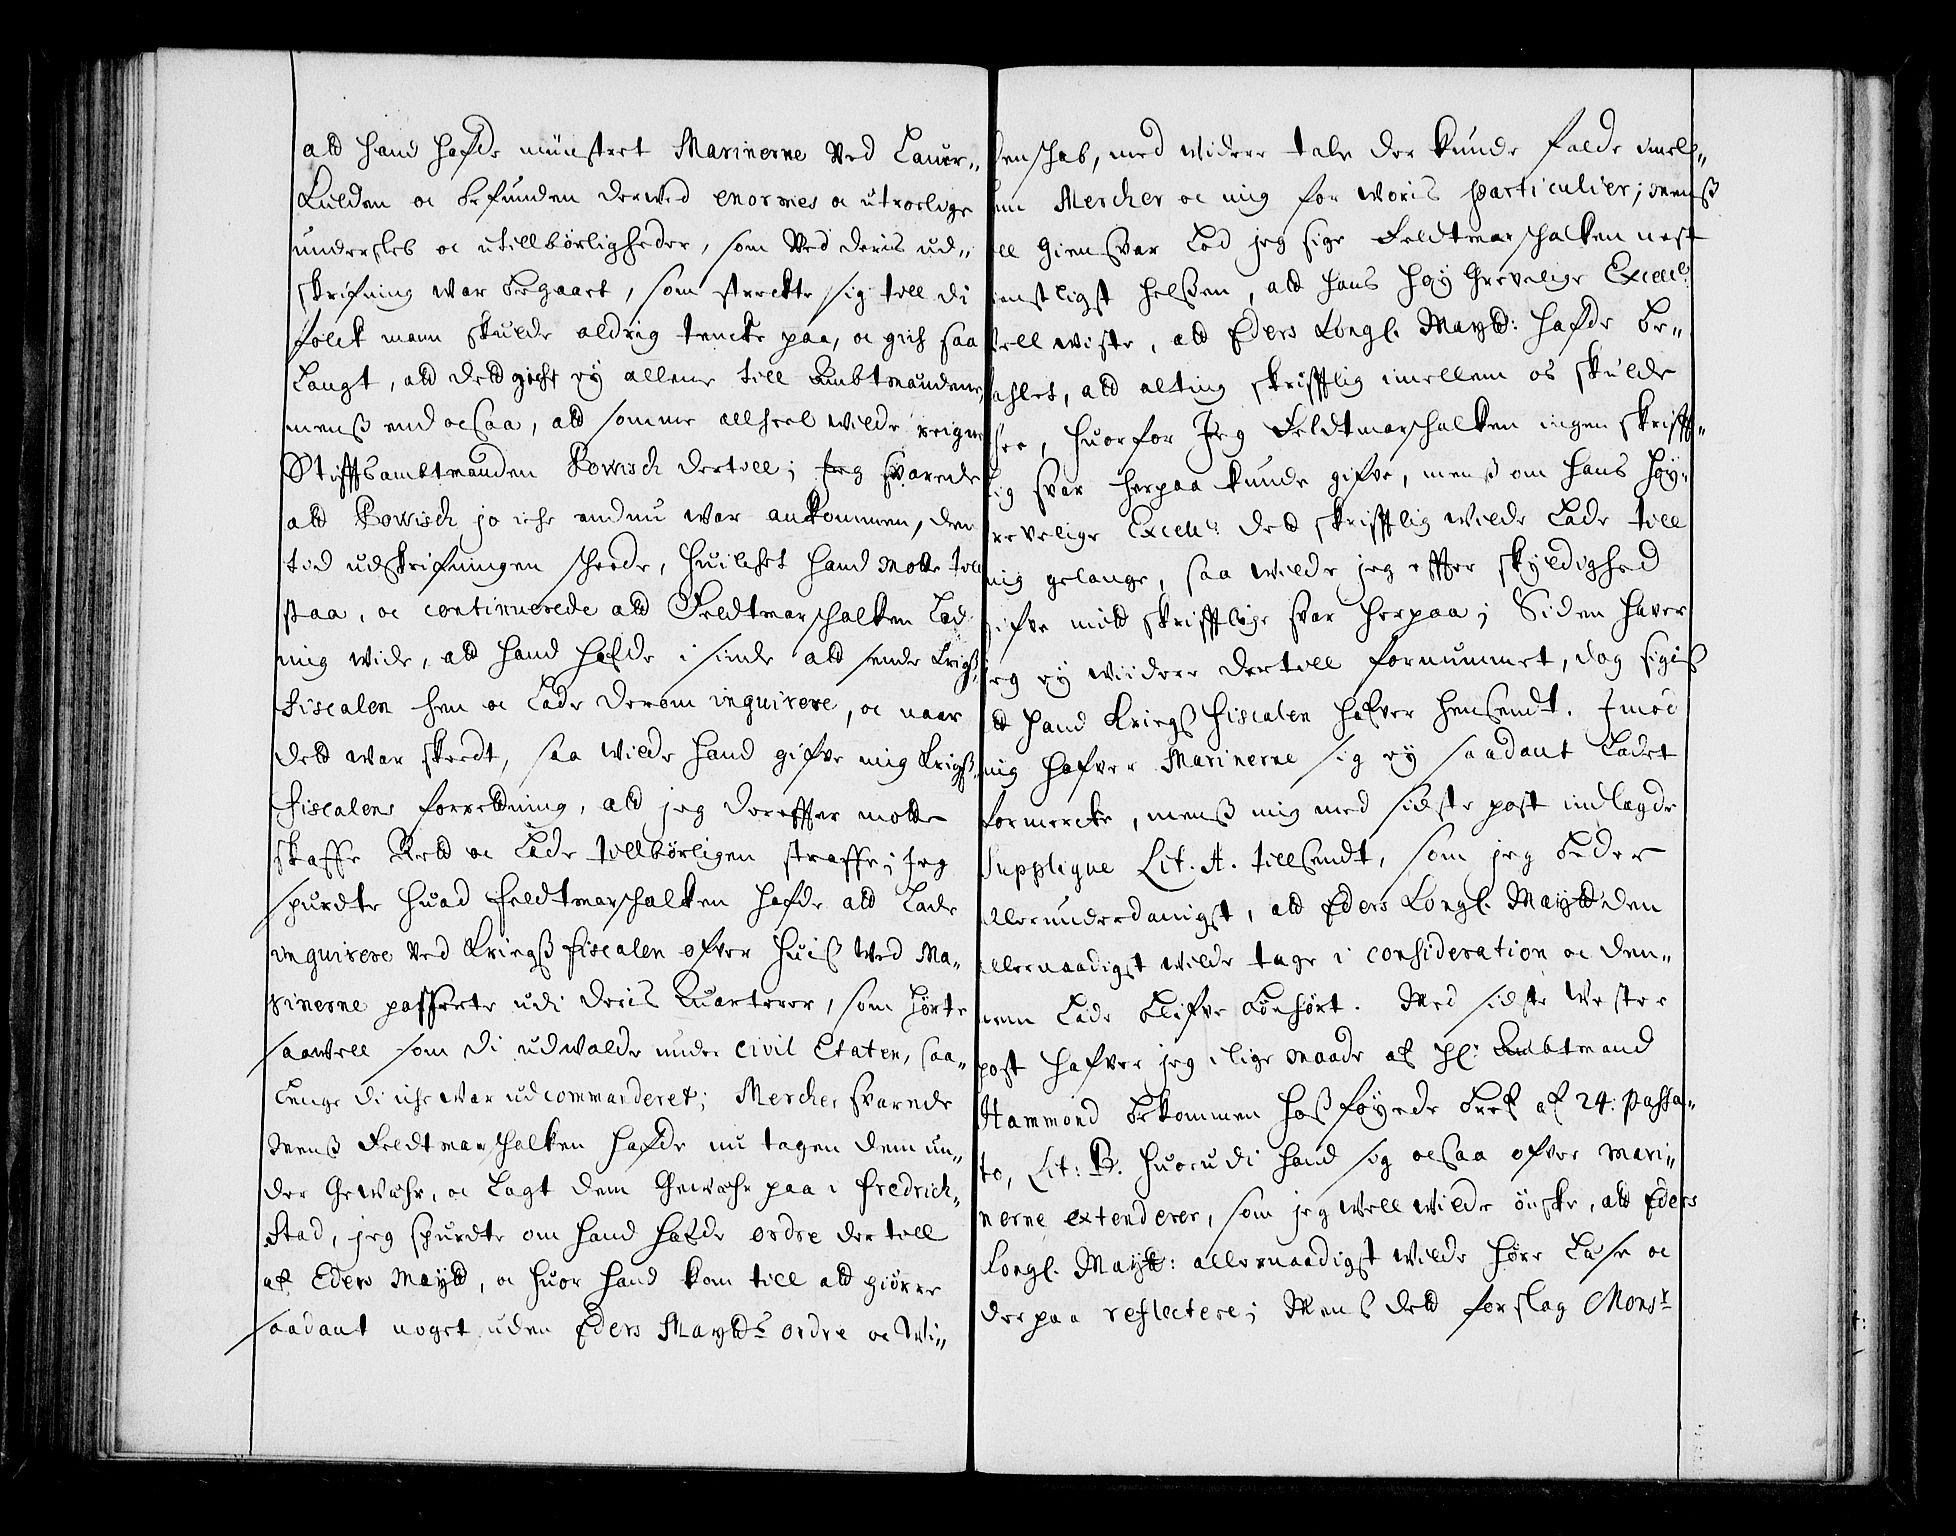 att hand hafde münstret Marinerne ved Laur-
kulden oc befunden derved enormes oc utroelige
undersleb oc utillbørligheder, som ved deris ud-
skrifning war begaaet, som streckte sig till di
folck mann skulde aldrig tencke paa, oc gich saa
langt, att dett gich ey allene till Ambtmandene,
menß end ocsaa, att somme allheel wilde reigne
Stifftsambtmanden Powisch dertill; Jeg svarede
att Powisch jo iche endnu war ankommen, den
tid udskrifningen scheede, huilchet hand motte till
staa, oc continuerede att Feldtmarschalken lod
mig wide, att hand hafde i sinde att sende krigß
fiscalen hen oc lade derom inquirere, oc naar
dett war skeedt, saa wilde hand gifve mig krigß
fiscalens forretning, att jeg dereffter motte
skaffe Rett oc lade tillbørligen straffe; Jeg
spurdte huad feldtmarschalken hafde att lade
inquirere ved Kriegß fiscalen ofver huiß ved Ma-
rinerne passerte udi deris Quarterer, som hørte
saawell som di udvalde under civil Etaten, saa-
lenge di iche war udcommanderet; Mercker svarede
Menß Feldtmarschalken hafde nu tagen dem un-
der Gewähr, oc lagt dem Gewähr paa i fredrich-
stad, jeg spurdte om hand hafde ordre dertill
af Eders Maytt, oc huor hand kom till att giörre
saadant noget uden Eders Maytts ordre oc Wi-
denschab, med widere tale der kunde falde imel-
lem Mercher oc mig for woris particulier; menß
till giensvar lod jeg sige Feldtmarschalken nest
tienstligst helßen, att hans høy Grevelige Excell:
vell wiste, att Eders Kongl. Maytt: hafde be-
fahlet, att alting skrifftlig imellem os skulde
skee, huorfor Jeg Feldtmarschalken ingen skrifft-
lig svar herpaa kunde gifve, menß om hans høy-
grevelige Excell: dett skrifftlig wilde lade till
mig gelange, saa wilde jeg effter skyldighed
gifve mitt skrifftlige svar herpaa; Siden haver
jeg ey wiidere dertill fornummet, dog sigis
att hand Kriegß fiscalen hafver hensendt. Imod
mig hafver Marinerne sig ey saadant ladet
formercke, menß mig med sidste post indlagde
Supplique Lit. A. tillsendt, som jeg beder
allerunderdanigst, att Eders Kongl. Maytt den
allernaadigst wilde tage i consideration oc den-
nem lade blifve bönhört. Med sidste Vester
post hafver jeg i lige maade af Hr: Ambtmand
Hammond bekommen hoßføyede bref af 24. passa-
to, Lit: B. huorudi hand sig ocsaa ofver mari-
nerne extenderer, som jeg well wilde önske, att Eders
Kongl. Maytt: allernaadigst wilde høre læse oc
derpaa reflectere; Mens dett forslag Monsr